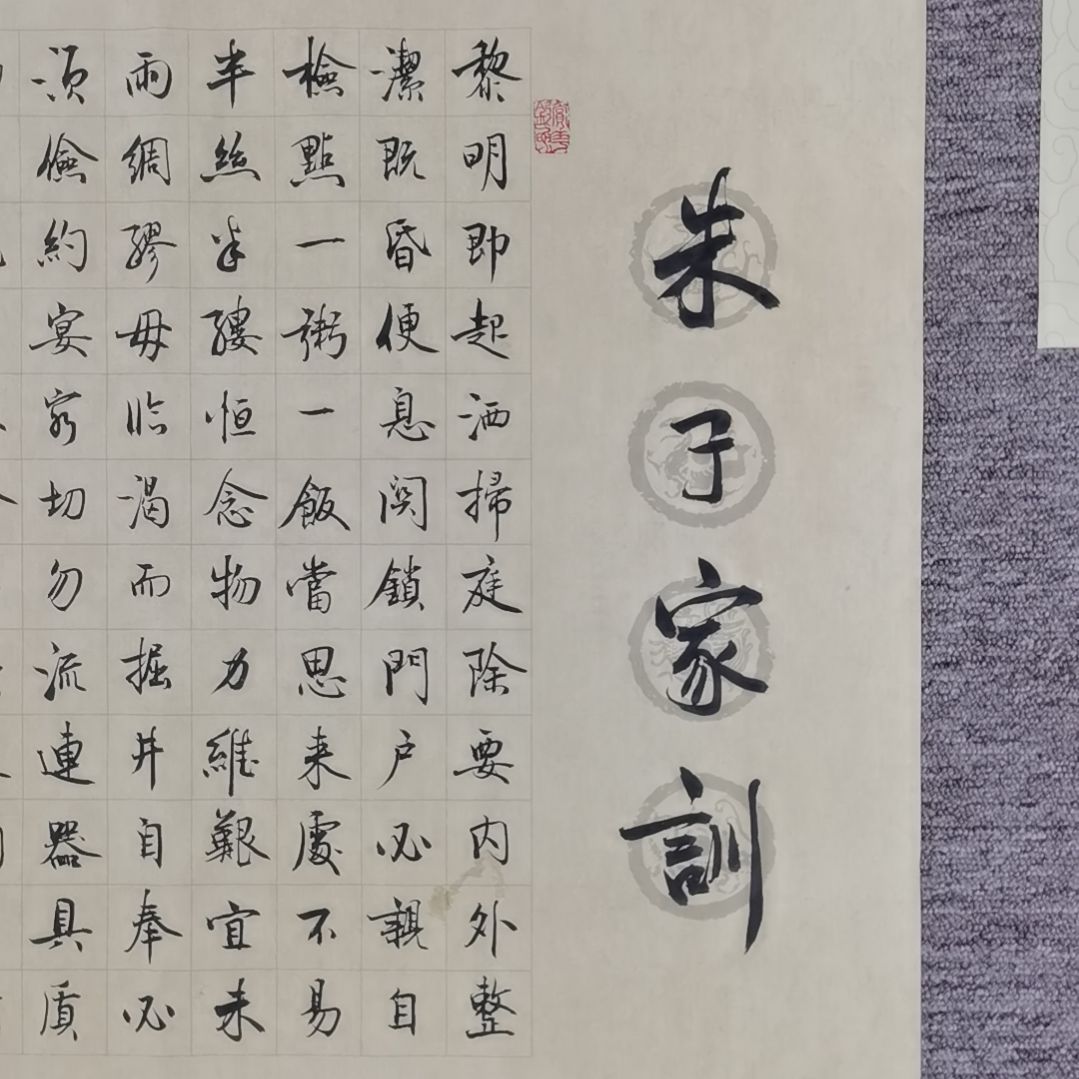 朱子家訓
黎明即起洒掃庭除要内外整
潔既昏便息関鎖門户必親自
檢點一粥一飯當思来處不易
半絲半縷恒念物力維艱宜未
雨綢繆毋臨渴而掘井自奉必
須儉約宴客切勿流連器具質